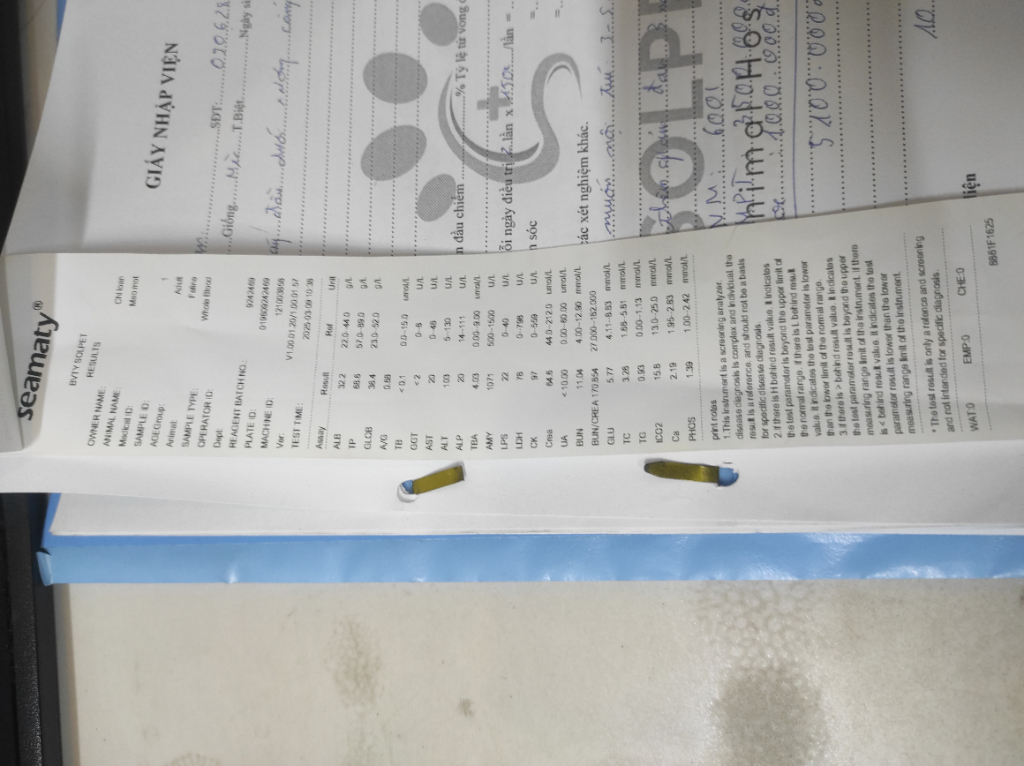 seamaty®
BVTY SOLPET
RESULTS
OWNER NAME: Chi loan
ANIMAL NAME: Meo mot
Medical ID:
SAMPLE ID: 1
AGE/Group: Adult
Animal: Feline
SAMPLE TYPE: Whole Blood
OPERATOR ID:
Dept:
REAGENT BATCH NO.:
PLATE ID: 9242469
MACHINE ID:
Ver:
TEST TIME: 2025-03-09 10:38
Assay Result Ref Unit
ALB 32.2 22.0-44.0 g/L
TP 68.6 57.0-89.0 g/L
GLOB 36.4 23.0-52.0 g/L
A/G 0.88
TB <0.1 0.0-15.0 umol/L
GGT <2 0-8 U/L
AST 20 0-48 U/L
ALT 103 5-130 U/L
ALP 20 14-111 U/L
TBA 4.03 0.00-9.00 umol/L
AMY 1071 500-1500 U/L
LPS 22 0-40 U/L
LDH 78 0-798 U/L
CK 97 0-559 U/L
Crea 64.6 44.0-212.0 umol/L
UA <10.00 0.00-60.00 umol/L
BUN 11.04 4.00-12.90 mmol/L
BUN/CREA 170.854 27.000-182.000
GLU 5.77 4.11-8.83 mmol/L
TC 3.26 1.68-5.81 mmol/L
TG 0.93 0.00-1.13 mmol/L
tCO2 15.8 13.0-25.0 mmol/L
Ca 2.19 1.95-2.83 mmol/L
PHOS 1.39 1.00-2.42 mmol/L
print notes
1.This instrument is a screening analyzer.
disease diagnosis is complex and individual. the
result is a reference, and should not be a basis
for specific disease diagnosis.
2.if there is H behind result value. it indicates
the test parameter is beyond the upper limit of
the normal range. if there is L behind result
value. it indicates the test parameter is lower
than the lower limit of the normal range.
3.if there is > behind result value. it indicates
the test parameter result is beyond the upper
measuring range limit of the instrument. if there
is < behind result value. it indicates the test
parameter result is lower than the lower
measuring range limit of the instrument.
* The test result is only a refence and screening
and not intended for specific diagnosis.
WAT:0 EMP:0 CHE:0
8881F1625
GIẤY NHẬP VIỆN
SĐT: 020.6.28
Ngày si
Giống: Mèo T.Biệt
n đầu chiếm % Tỷ lệ tử vong
ỗi ngày điều trị 2 lần x 150k /lần =
n sóc =
các xét nghiệm khác. =
SOLP
nimal Hos
5100.000đ
10
iện